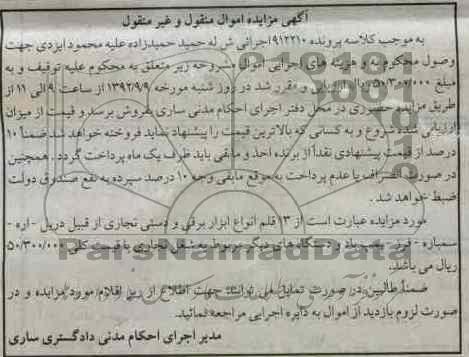 آگهی مزایده اموال منقول و غیر منقول
به موجب کلاسه پرونده ۹۱۲۲۱۰ اجرائی ش له حمید حمیدزاده علیه محمود ایزدی جهت
وصول محکوم به و هزینه های اجرایی اموال مشروحه زیر متعلق به محکوم علیه توقیف و به
مبلغ ۵۰/۳۰۰/۰۰۰ ریال ارزیابی و مقرر شد در روز شنبه مورخه ۱۳۹۲/۹/۹ از ساعت ۹ الی ۱۱ از
طریق مزایده حضوری در محل دفتر اجرای احکام مدنی ساری بفروش برسد و قیمت از میزان
ارزیابی شده شروع و به کسانی که بالاترین قیمت را پیشنهاد نماید فروخته خواهد شد ضمنا ۱۰
درصد از قیمت پیشنهادی نقدا از برنده اخذ و مابقی باید ظرف یک ماه پرداخت گردد. همچنین
در صورت انصراف یا عدم پرداخت به موقع مابقی وجه ۱۰ درصد سپرده به نفع صندوق دولت
ضبط خواهد شد.
مورد مزایده عبارت است از ۱۳ قلم انواع ابزار برقی و دستی نجاری از قبیل دریل - اره -
سمباره - فرز - پمپ باد و دستگاه های دیگر مربوط به شغل نجاری با قیمت کلی ۵۰/۳۰۰/۰۰۰
ریال می باشد.
ضمنا طالبین در صورت تمایل می توانند جهت اطلاع از ریز اقلام مورد مزایده و در
صورت لزوم بازدید از اموال به دایره اجرایی مراجعه نمائید.
مدیر اجرای احکام مدنی دادگستری ساری
ParsNamadData